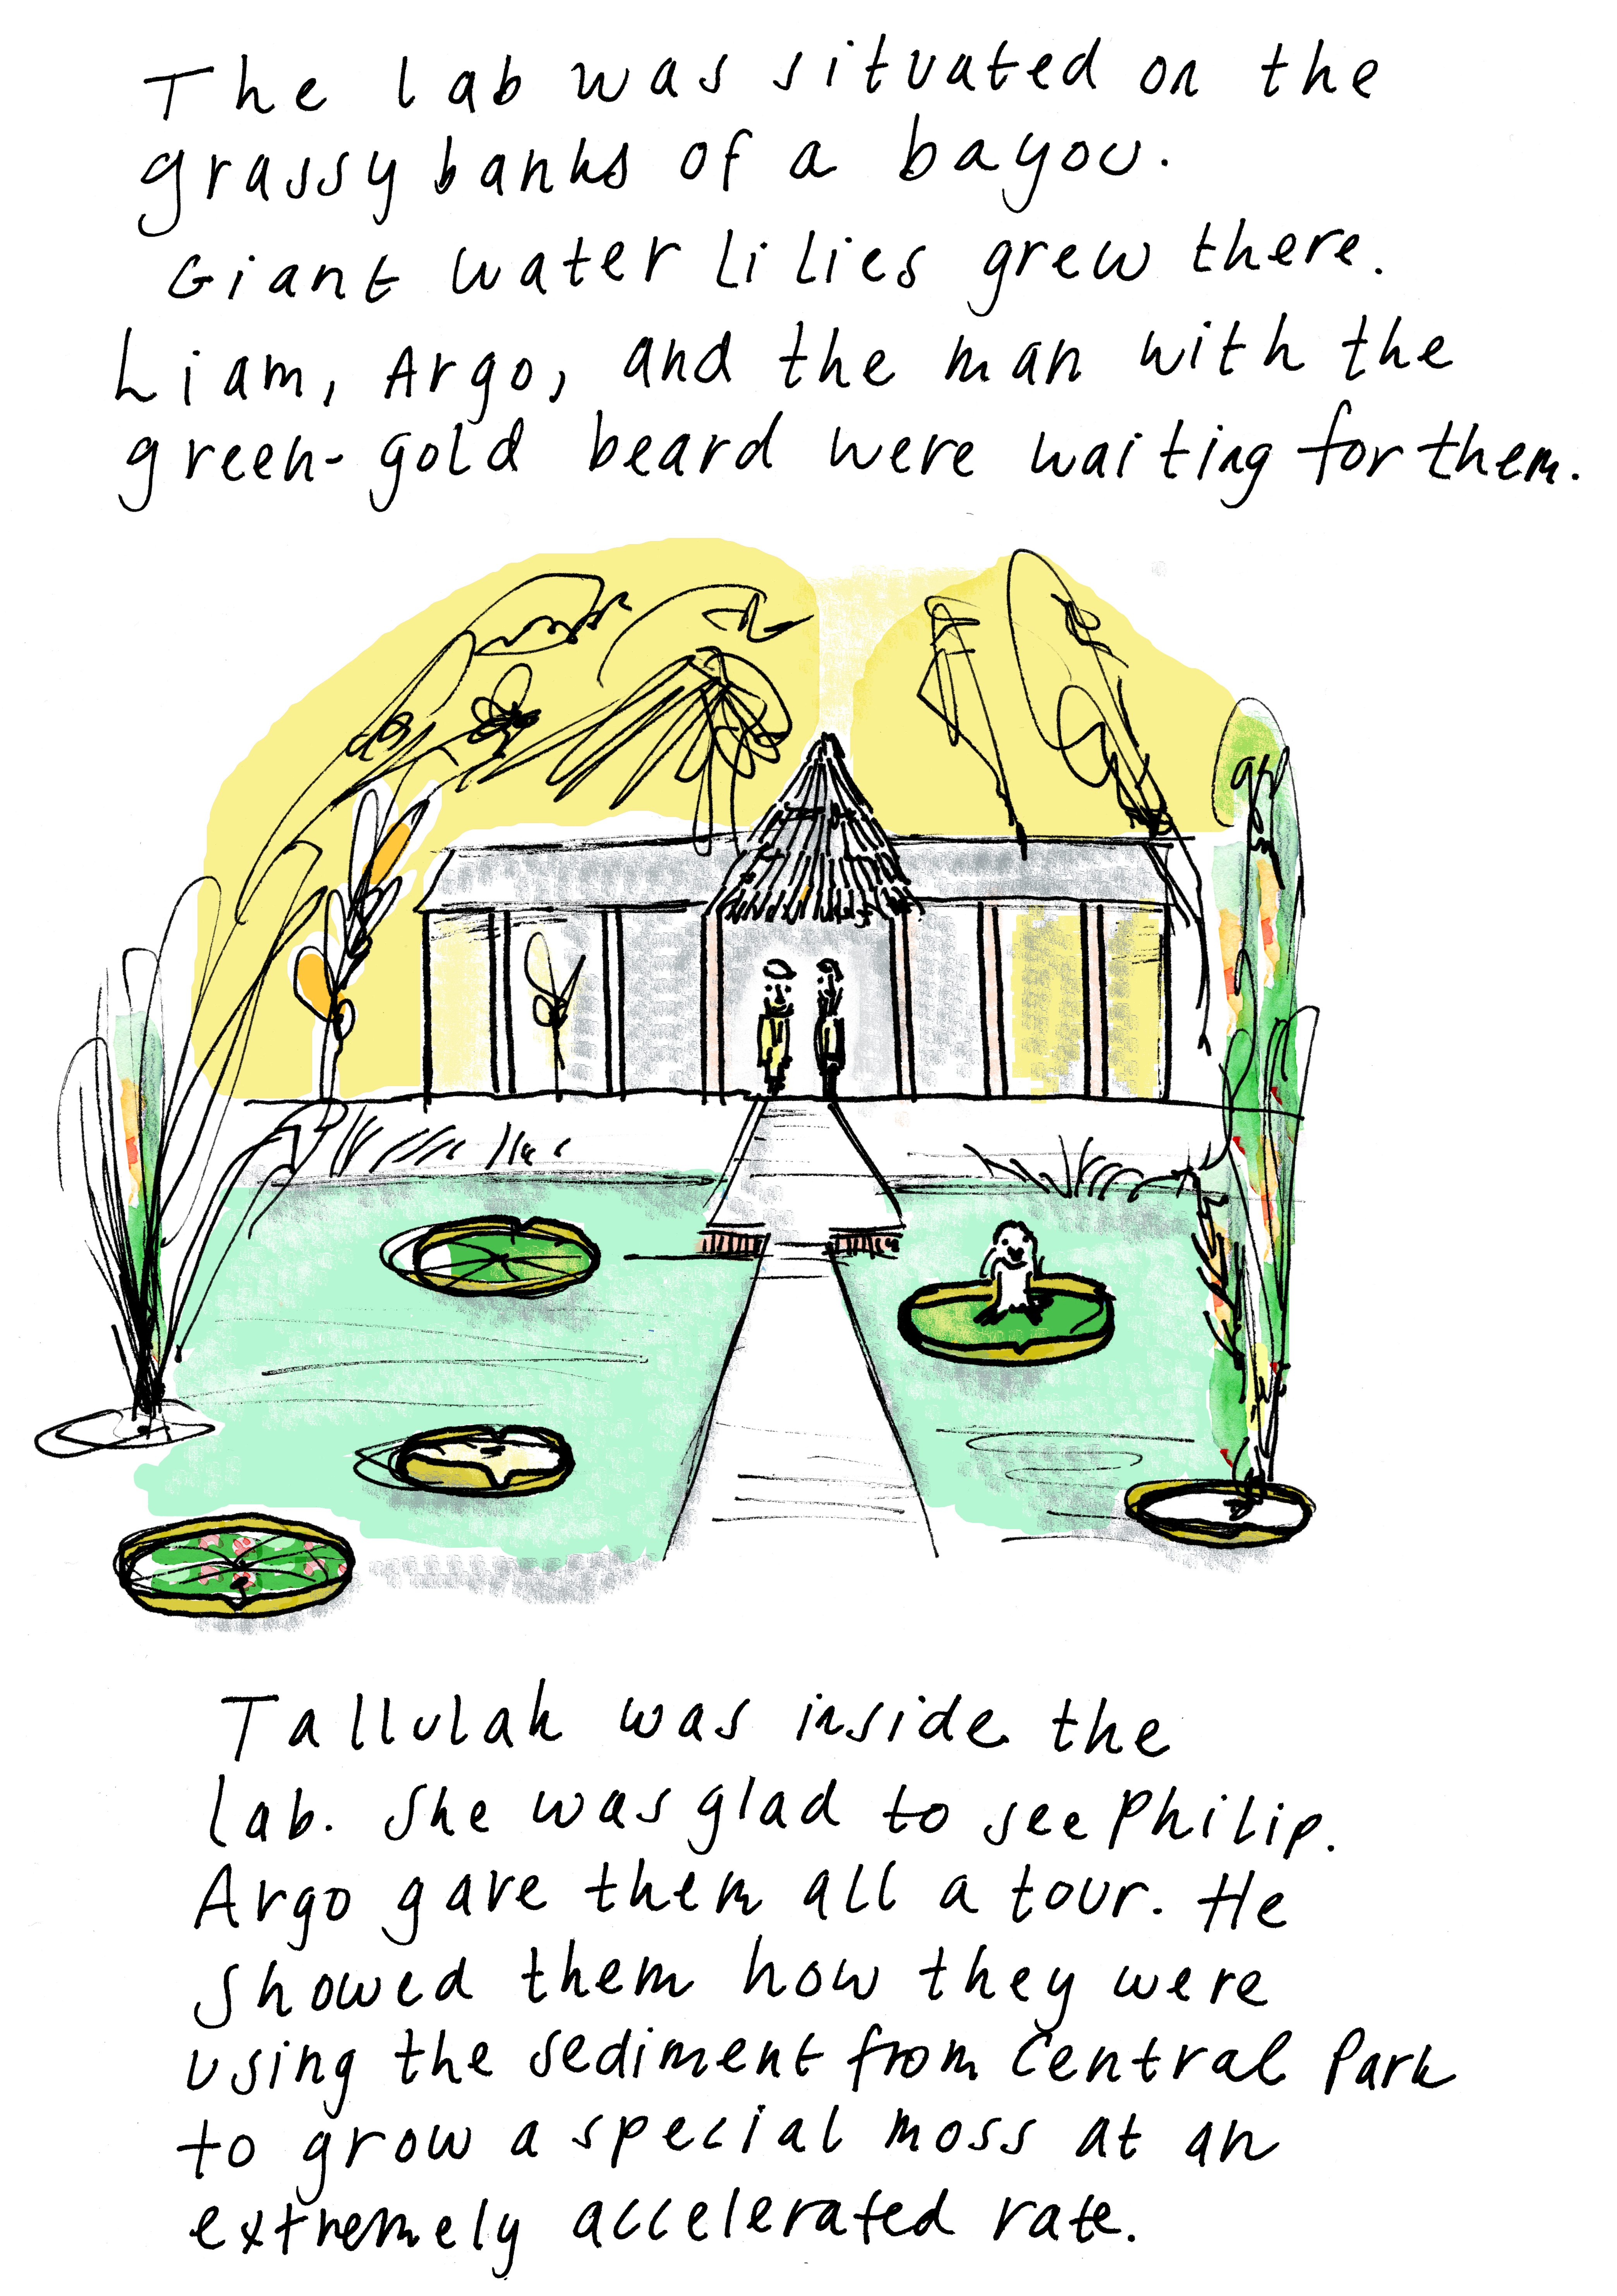 The lab was situated on the
grassy banks of a bayou.
Giant water lilies grew there.
Liam, Argo, and the man with the
green-gold beard were waiting for them.
Tallulah was inside the
lab. She was glad to see Philip.
Argo gave them all a tour. He
showed them how they were
using the sediment from Central Park
to grow a special moss at an
extremely accelerated rate.